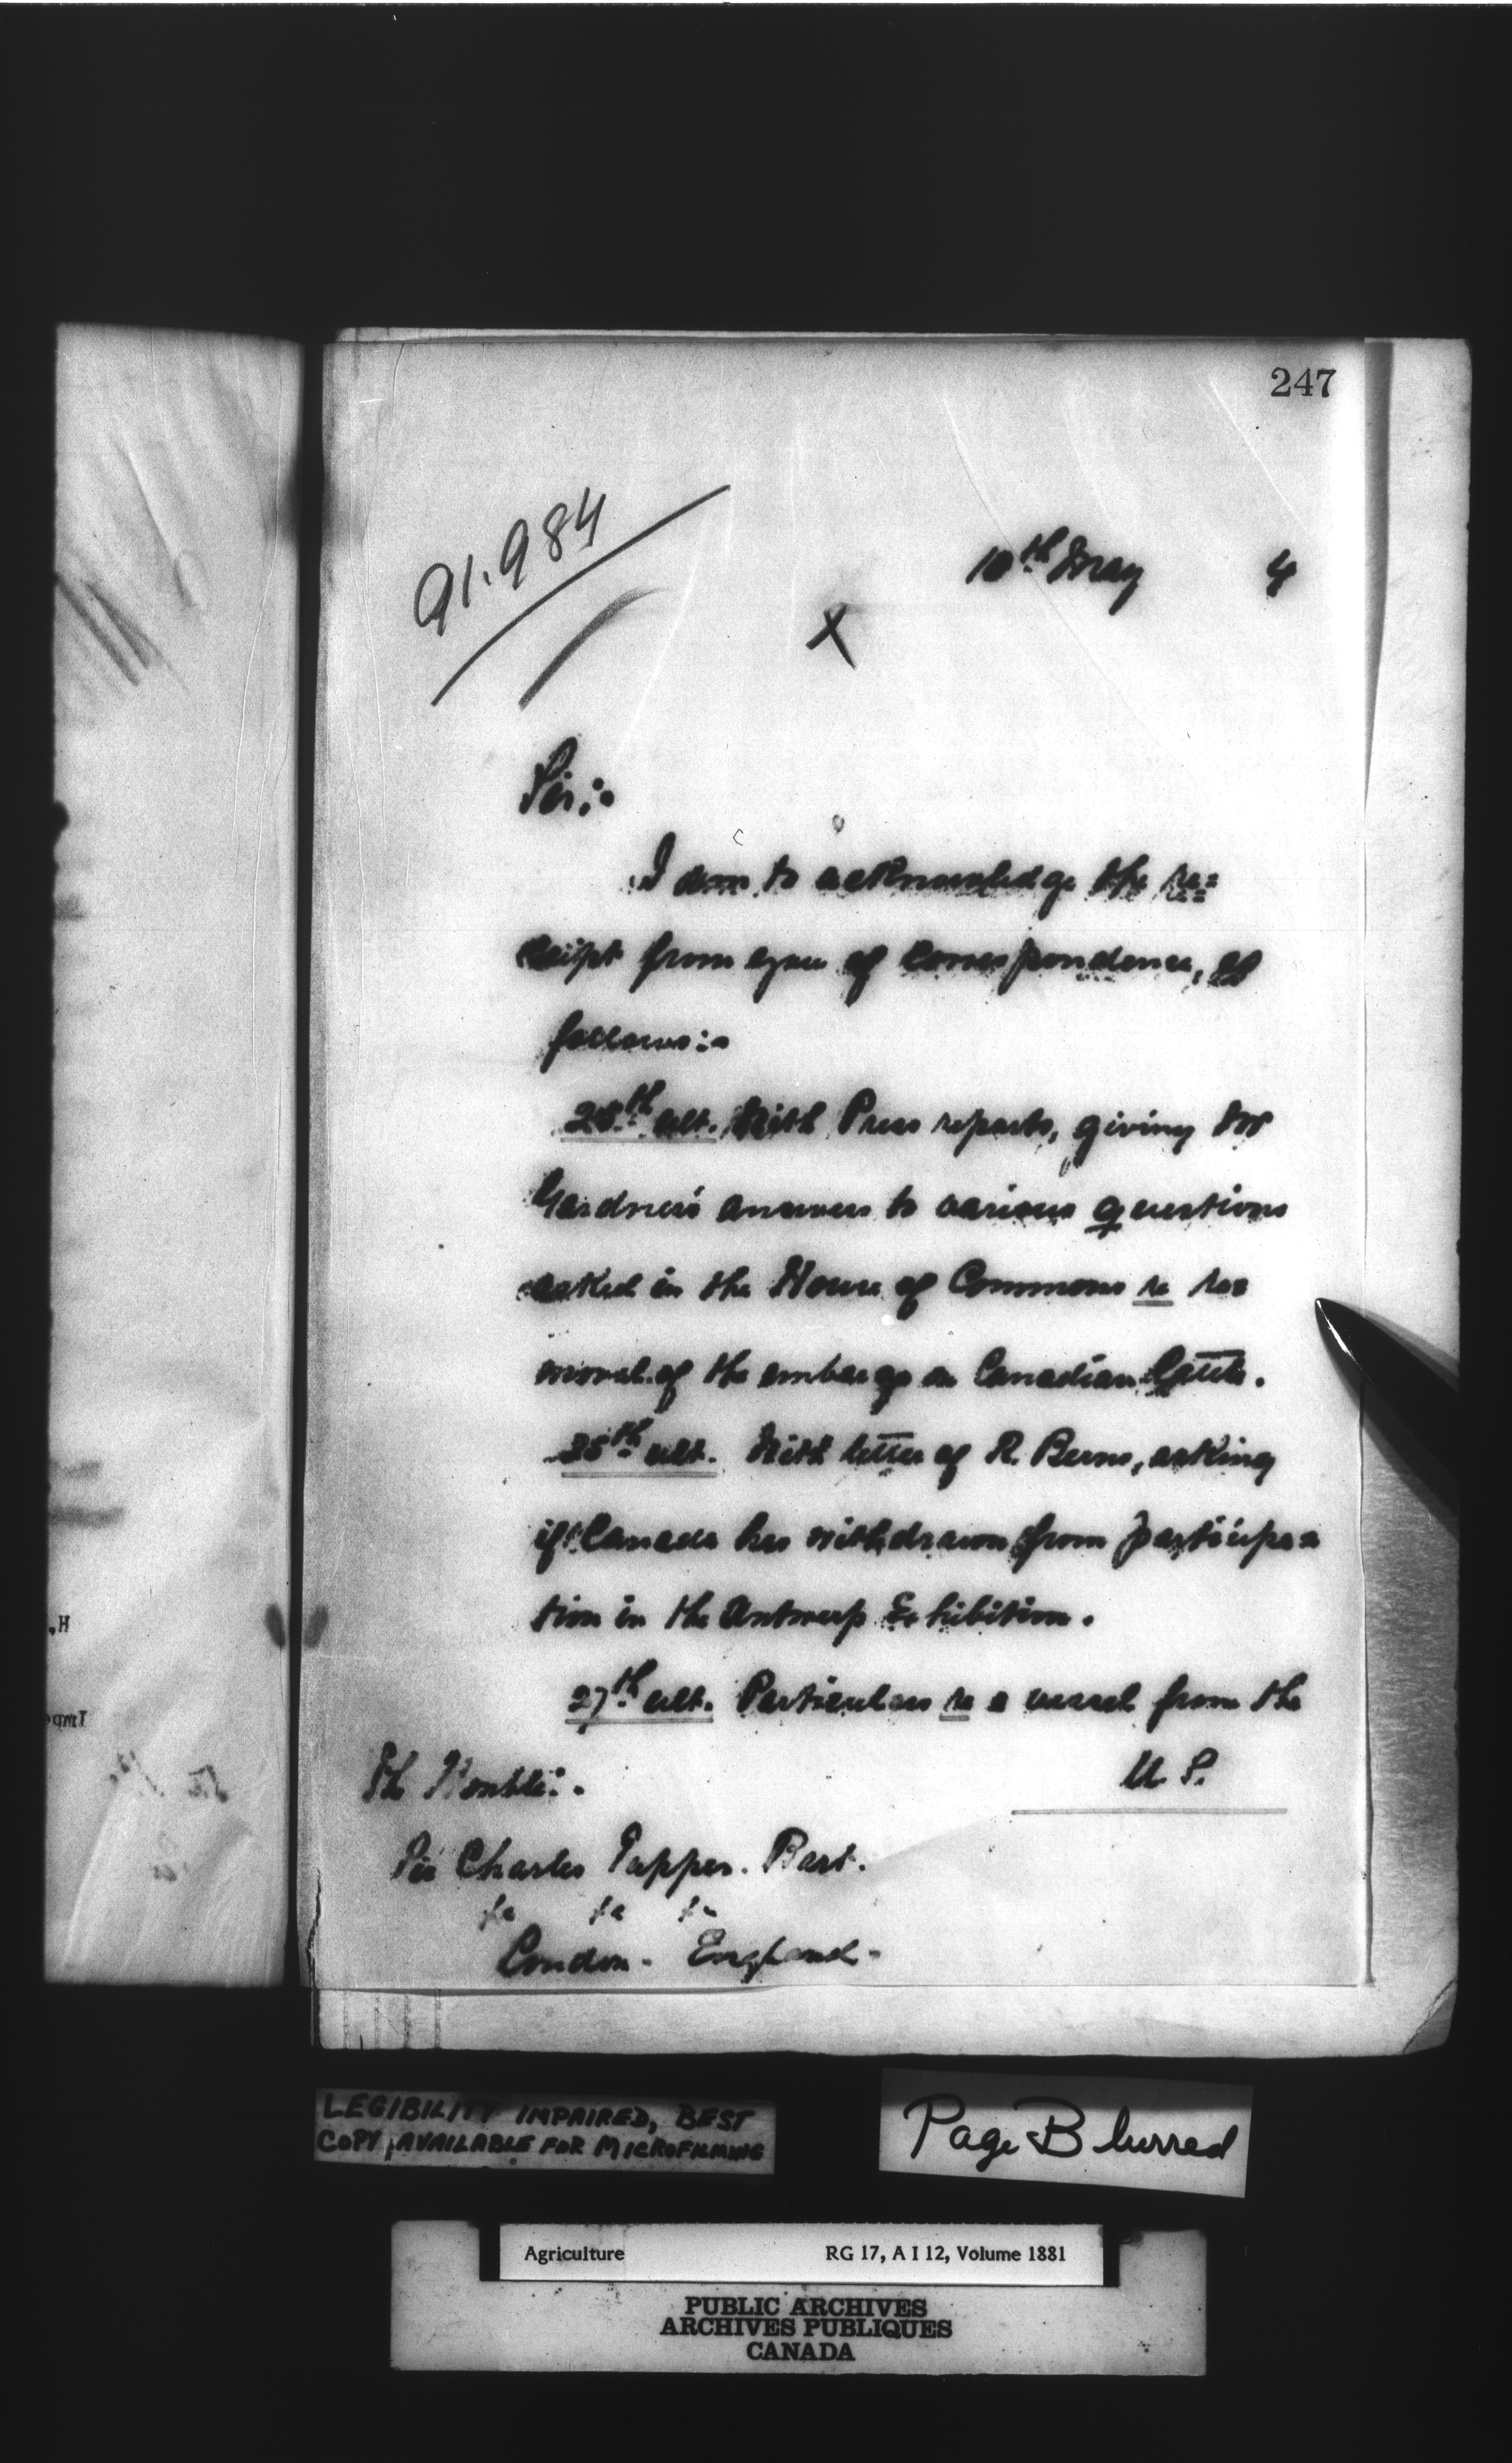 247
91.984
10th May 4
X
Sir:-
I am to acknowledge the re=
ceipt from you of correspondence, as
follows:-
25th ult. With Press reports, giving Mr
Gardner's answers to various questions
asked in the House of Commons re re=
moval of the embargo on Canadian Cattle.
25th ult. With letter of R. Berns, asking
if Canada has withdrawn from participa=
tion in the Antwerp Exhibition.
27th ult. Particulars re a vessel from the
U. S.
Th Honble:-
Sir Charles Tupper. Bart.
&c &c &c
London - England -
LEGIBILITY IMPAIRED, BEST
COPY AVAILABLE FOR MICROFILMING
Page Blurred
Agriculture RG 17, A I 12, Volume 1881
PUBLIC ARCHIVES
ARCHIVES PUBLIQUES
CANADA